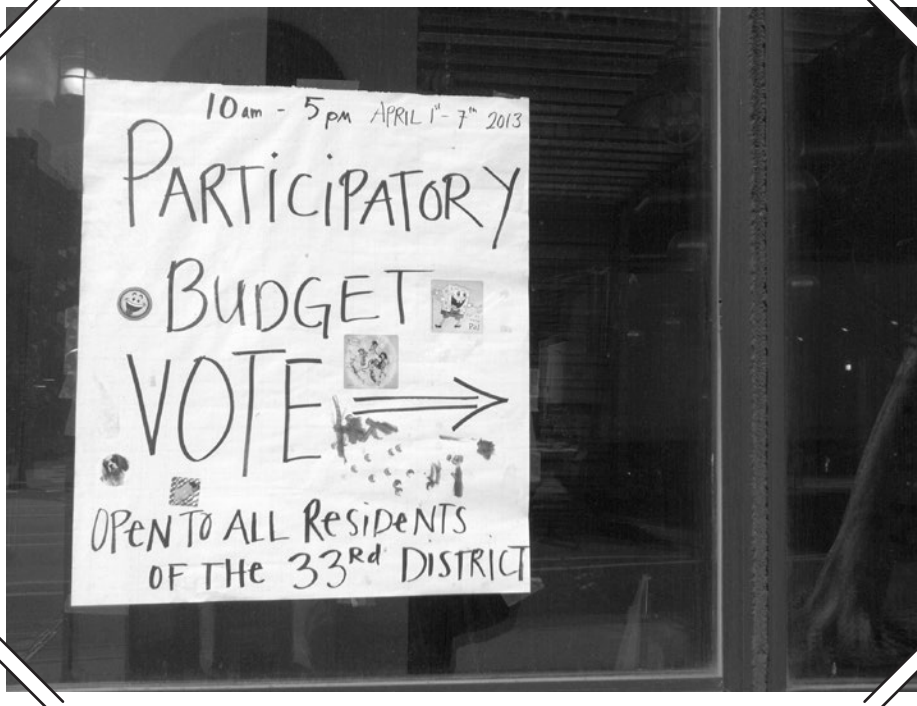 10am - 5pm APRIL 1st - 7th 2013
PARTiCiPATORY
BUDGET
VOTE
OPeN TO ALL ResiDeNTS
OF THe 33Rd DISTRICT